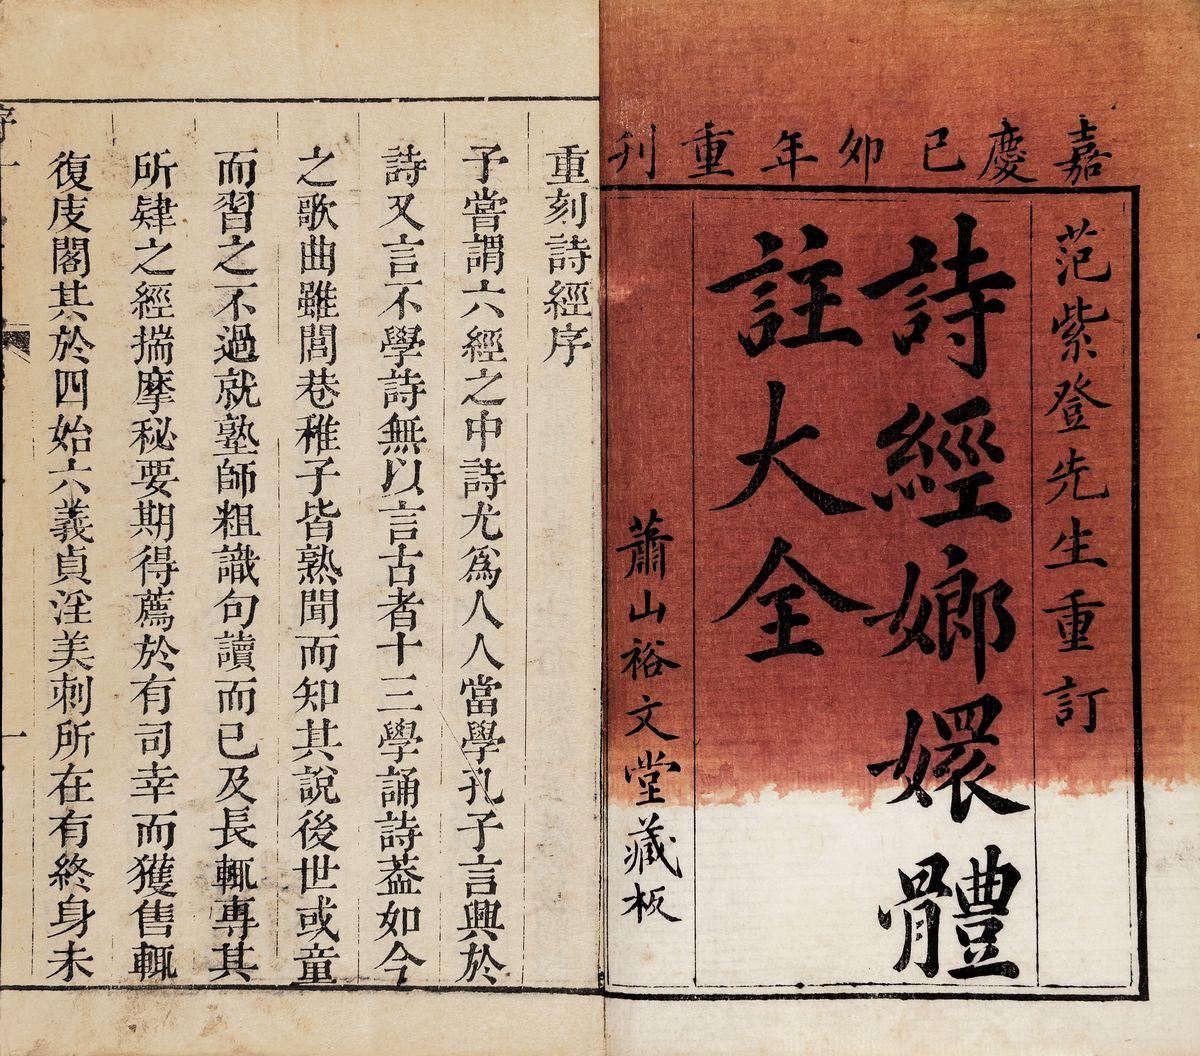 嘉慶己卯年重刊
范紫登先生重訂
詩經嫏嬛體
註大全
蕭山裕文堂藏板
重刻詩經序
予嘗謂六經之中詩尤為人人當學孔子言興於
詩又言不學詩無以言古者十三學誦詩葢如今
之歌曲雖閭巷稚子皆熟聞而知其說後世或童
而習之不過就塾師粗識句讀而已及長輒專其
所肄之經揣摩秘要期得薦於有司幸而獲售輒
復庋閣其於四始六義貞淫美刺所在有終身未